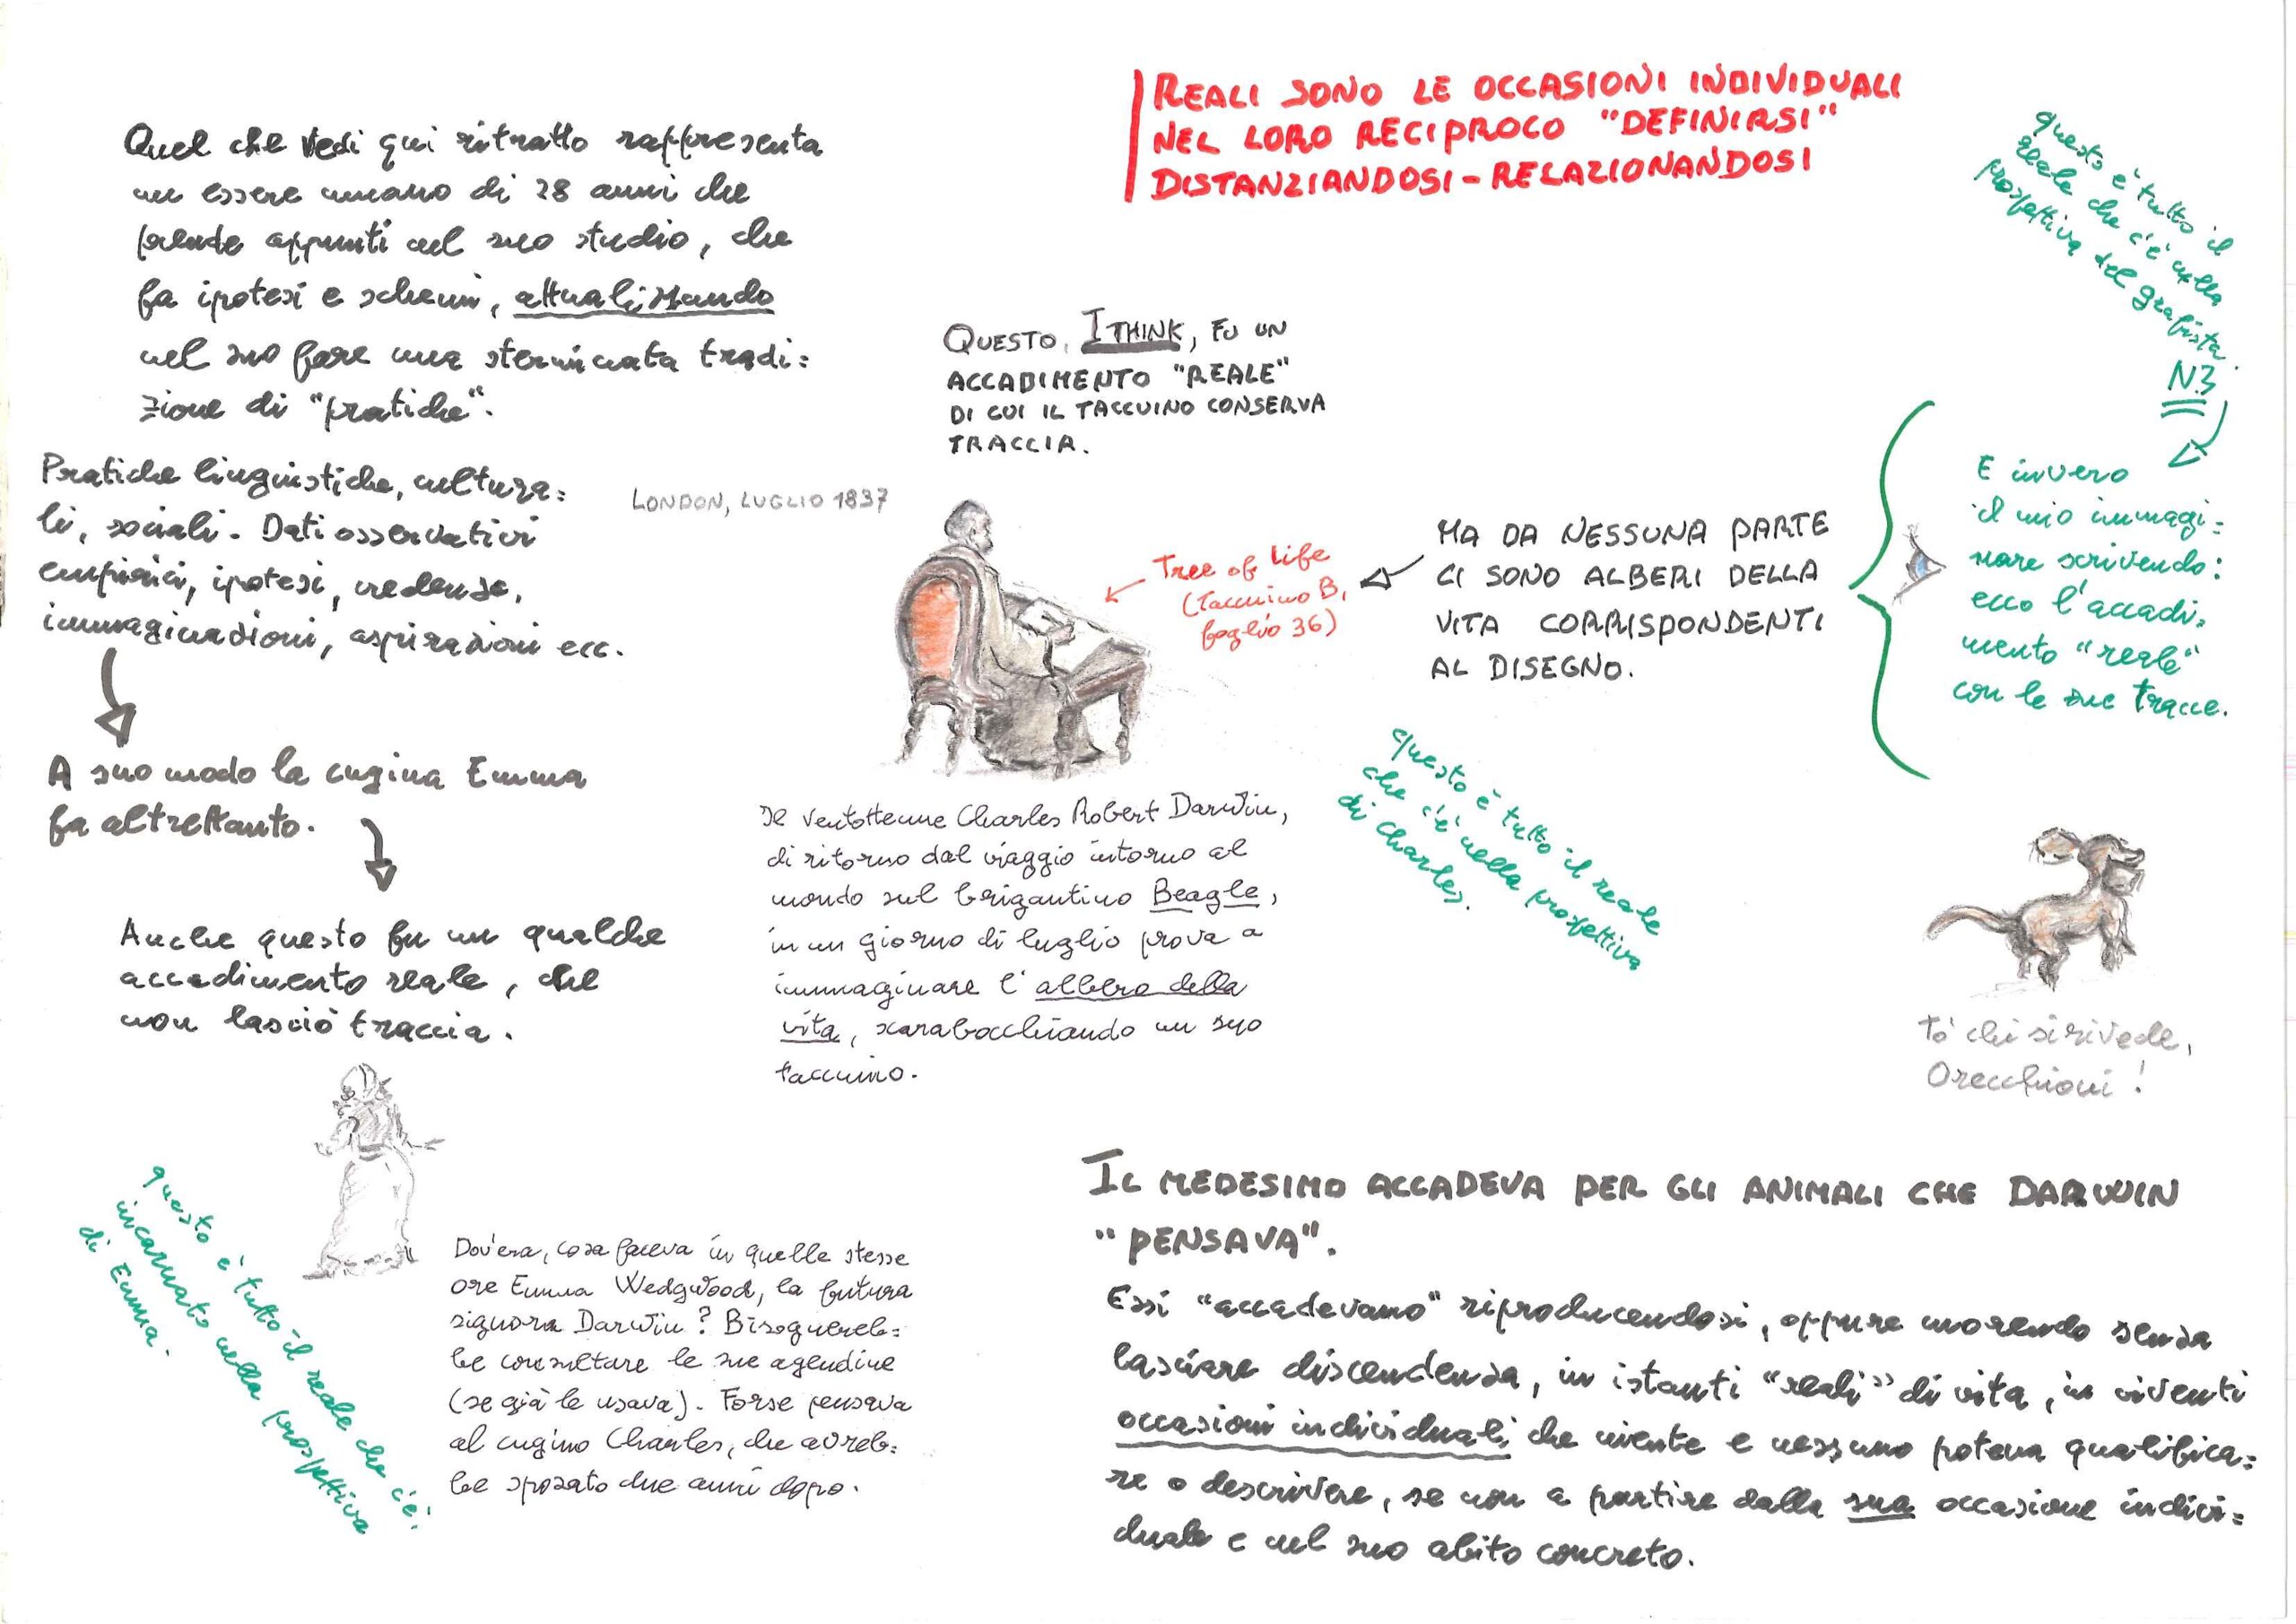 REALI SONO LE OCCASIONI INDIVIDUALI
NEL LORO RECIPROCO "DEFINIRSI"
DISTANZIANDOSI-RELAZIONANDOSI
Quel che vedi qui ritratto rappresenta
un essere umano di 28 anni che
prende appunti nel suo studio, che
fa ipotesi e schemi, attualizzando
nel suo fare una sterminata tradi=
zione di "pratiche".
Pratiche linguistiche, cultura=
li, sociali. Dati osservativi
empirici, ipotesi, credenze,
immaginazioni, aspirazioni ecc.
A suo modo la cugina Emma
fa altrettanto.
Anche questo fu un qualche
accadimento reale, che
non lasciò traccia.
questo è tutto il reale che c'è
incarnato nella prospettiva
di Emma.
Dov'era, cosa faceva in quelle stesse
ore Emma Wedgwood, la futura
signora Darwin? Bisognereb=
be consultare le sue agendine
(se già le usava). Forse pensava
al cugino Charles, che avreb=
be sposato due anni dopo.
QUESTO, I THINK, FU UN
ACCADIMENTO "REALE"
DI CUI IL TACCUINO CONSERVA
TRACCIA.
LONDON, LUGLIO 1837
Tree of Life
(Taccuino B,
foglio 36)
MA DA NESSUNA PARTE
CI SONO ALBERI DELLA
VITA CORRISPONDENTI
AL DISEGNO.
Il ventottenne Charles Robert Darwin,
di ritorno dal viaggio intorno al
mondo sul brigantino Beagle,
in un giorno di luglio prova a
immaginare l'albero della
vita, scarabocchiando un suo
taccuino.
questo è tutto il reale
che c'è nella prospettiva
di Charles.
questo è tutto il
reale che c'è nella
prospettiva del grafista
N3
E invero
il mio immagi=
nare scrivendo:
ecco l'accadi=
mento "reale"
con le sue tracce.
To' chi si rivede,
Orecchioni!
IL MEDESIMO ACCADEVA PER GLI ANIMALI CHE DARWIN
"PENSAVA".
Essi "accadevano" riproducendosi, oppure morendo senza
lasciare discendenza, in istanti "reali" di vita, in viventi
occasioni individuali che niente e nessuno poteva qualifica=
re o descrivere, se non a partire dalla sua occasione indivi=
duale e nel suo abito concreto.